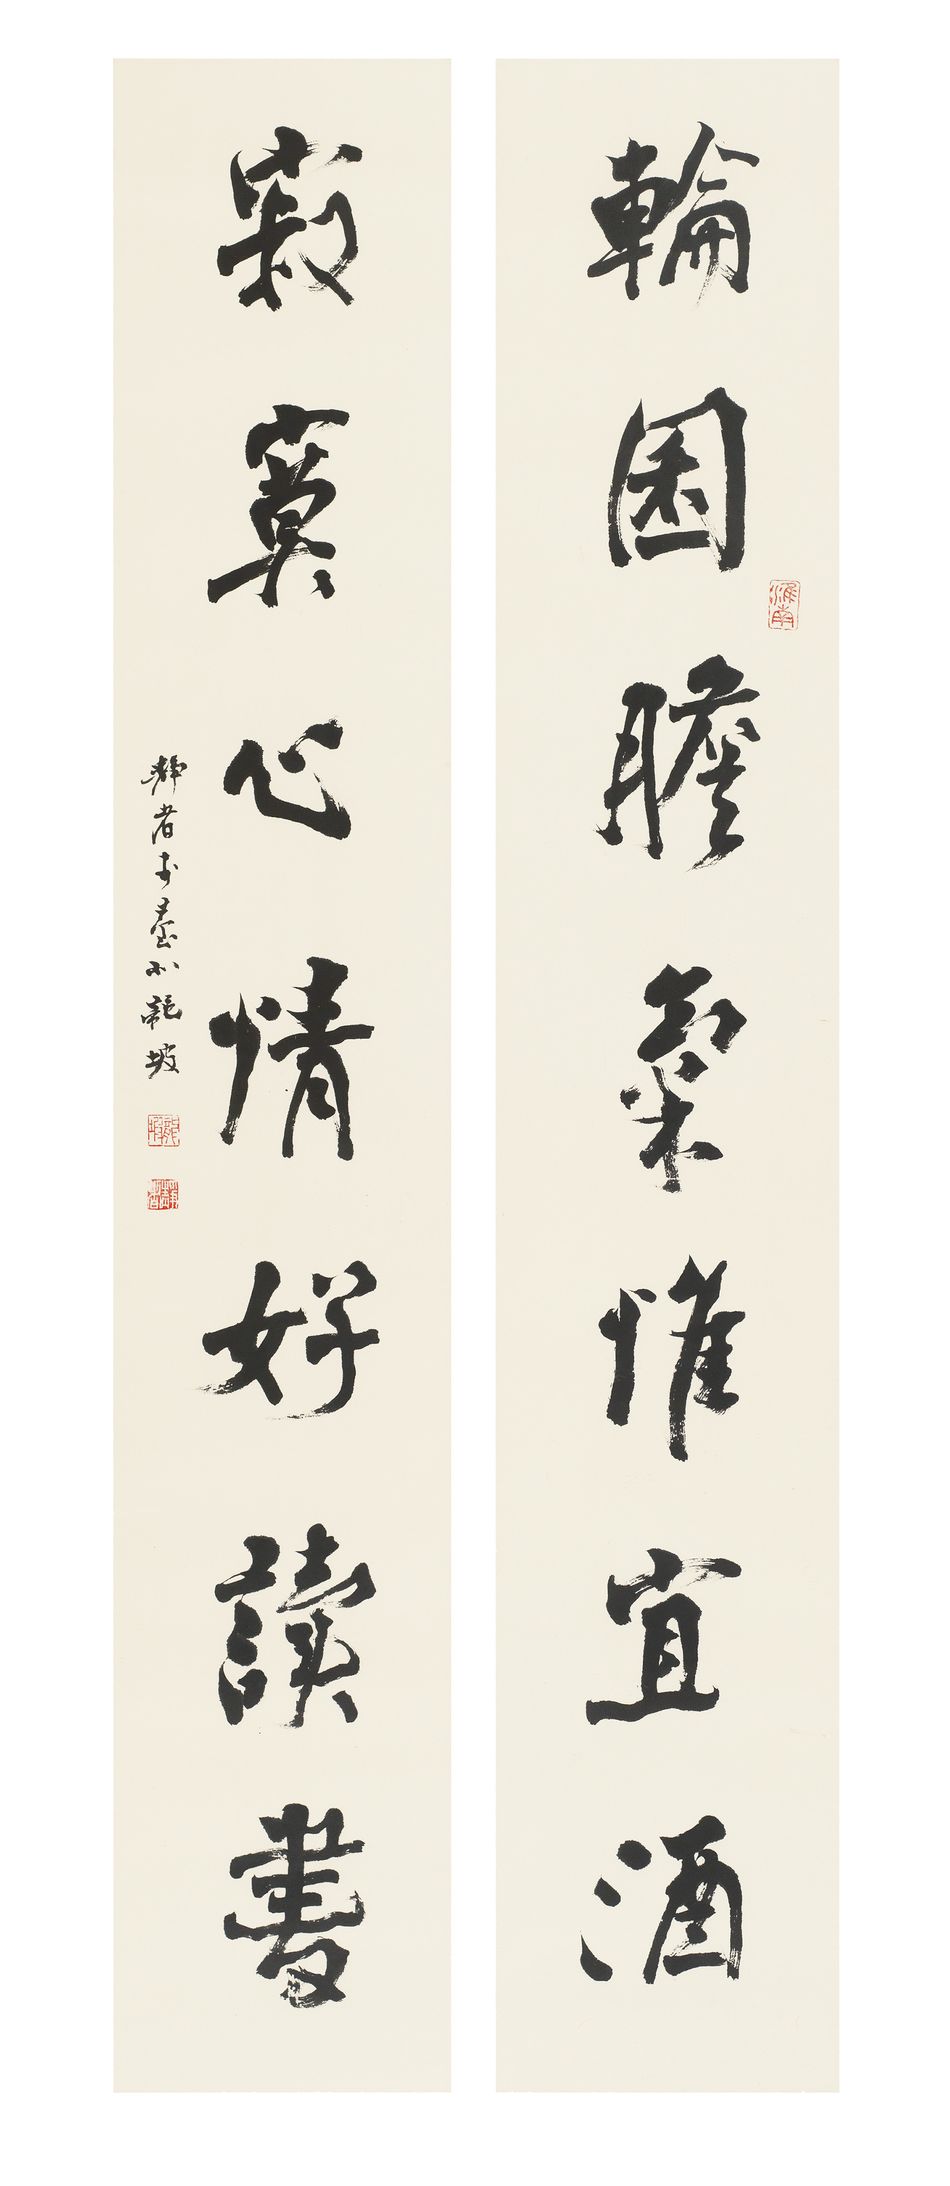 輪囷膽氣惟宜酒
寂寞心情好讀書
靜者書於臺北龍坡
淮南